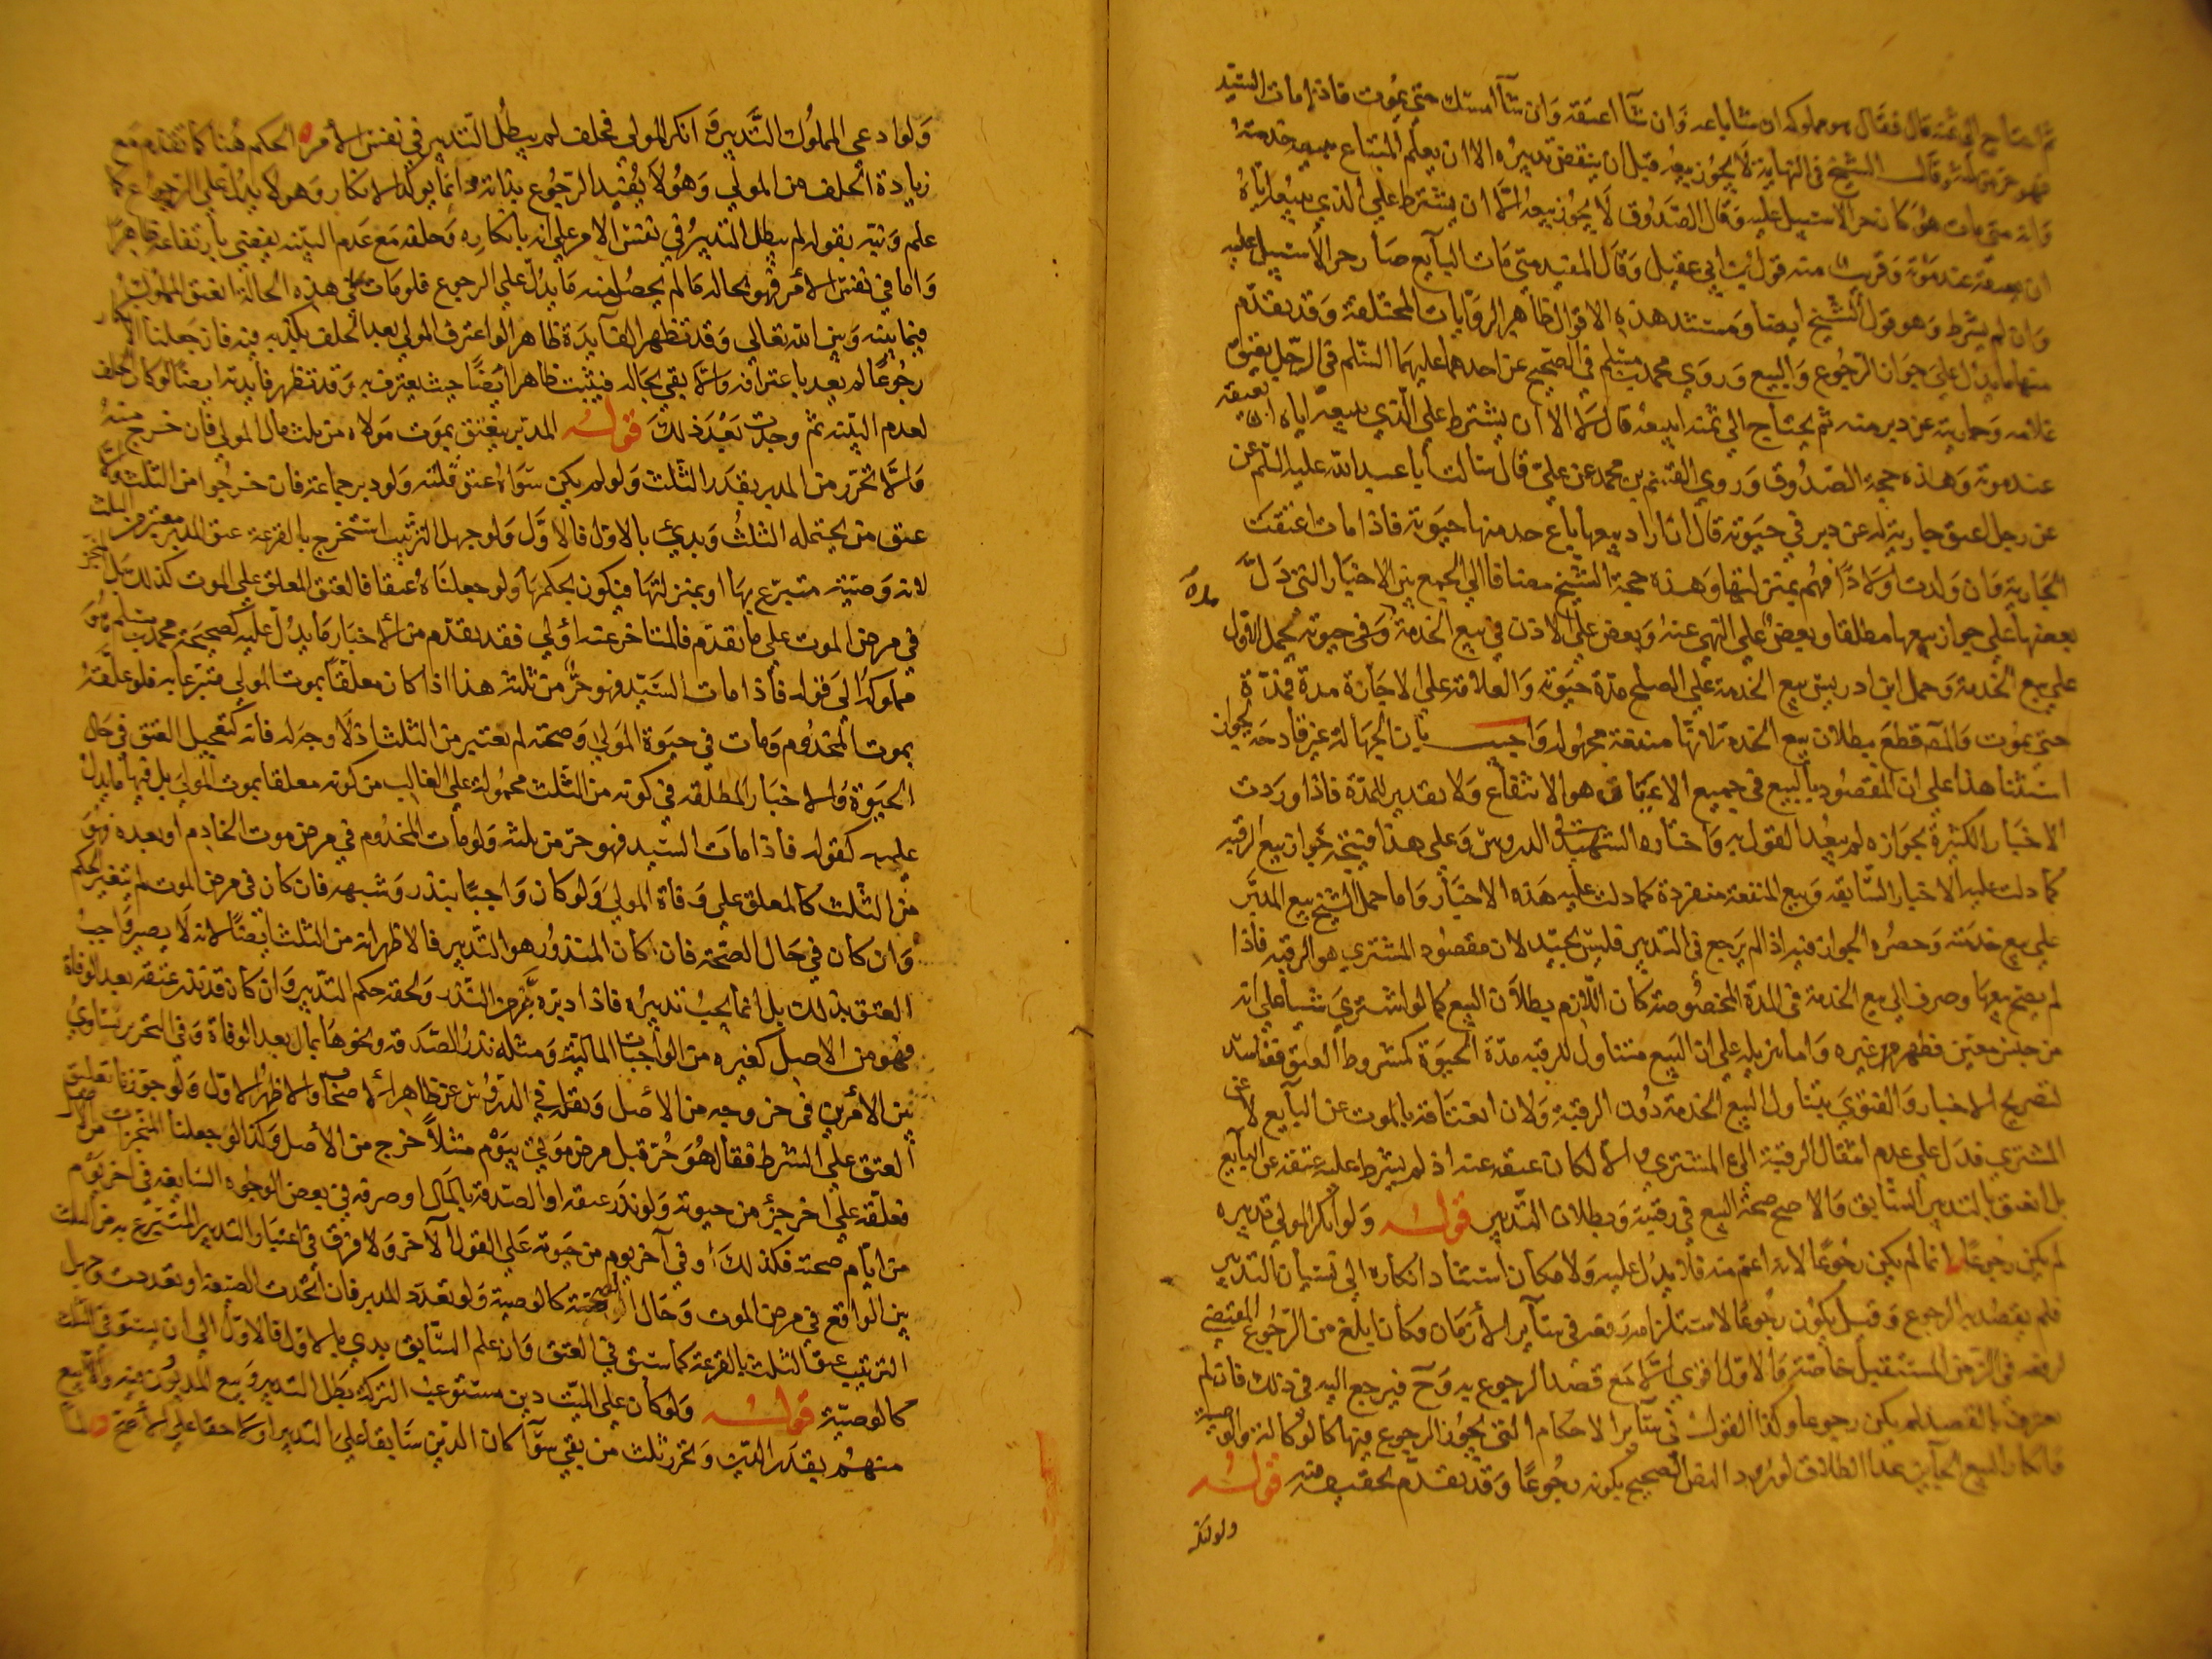 ثم احتاج الى ثمنه قال فقال هو مملوكه ان شا باعه وان شآ اعتقه وان شآ امسك حتى يموت فاذا مات السيد
فهو حر من ثلثه وقال الشيخ في النهاية لا يجوز بيعه قبل ان ينقض تدبيره الا ان يعلم المبتاع خدمته
وانه متى مات هو كان حرا لا سبيل عليه وقال الصدوق لا يجوز بيعه الا ان يشترط على الذي يبيعه اياه
ان يعتقه عند موته وقريب منه قول ابن ابي عقيل وقال المفيد متى مات البايع صار حرا لا سبيل عليه
وان لم يشترط وهو قول الشيخ ايضا ومستند هذه الاقوال ظاهر الروايات المختلفة وقد تقدم
منها ما يدل على جواز الرجوع والبيع وروي محمد بن مسلم في الصحيح عن احدهما عليهما السلم في الرجل يعتق
غلامه وجاريته عن دبر منه ثم يحتاج الى ثمنه ايبيعه قال لا الا ان يشترط على الذي يبيعه اياه ان يعتقه
عند موته وهذه حجة الصدوق وروي القسم بن محمد عن علي قال سالت أبا عبد الله عليه السلم عن
عن رجل اعتق جارية له عن دبر في حيوته قال ان اراد بيعها باع خدمتها حيوته فاذا مات اعتقت
الجارية وان ولدت اولادا فهم بمنزلتها وهذه حجة الشيخ مضافا الى الجمع بين الاخبار التى دل
بعضها على جواز بيعها مطلقا وبعض على النهى عنه وبعض على الاذن في بيع الخدمة وفى حيوته بحمل الاول
على بيع الخدمة وحمل ابن ادريس بيع الخدمة على الصلح مدة حيوته والعلامة على الاجارة مدة فمدة
حتى يموت والمص قطع ببطلان بيع الخدمة لانها منفعة مجهوله واجيب بان الجهالة غير قادحة لجواز
استثنا هذا على ان المقصود بالبيع فى جميع الاعيان هو الانتفاع ولا تقدير للمدة فاذا وردت
الاخبار الكثيرة بجوازه لم يبعد القول به واختاره الشهيد في الدروس وعلى هذا فيتخير جواز بيع الرقبه
كما دلت عليه الاخبار السابقه وبيع المنفعة منفردة كما دلت عليه هذه الاخبار واما حمل الشيخ بيع المدبر
على بيع خدمته وحصره الجواز فيه اذا لم يرجع فى التدبير فليس بجيد لان مقصود المشتري هو الرقبه فاذا
لم يصح بيعها وصرف الى بيع الخدمة فى المدة المخصوصة كان اللازم بطلان البيع كما لو اشترى شيأ على انه
من جنس معين فظهر من غيره واما تنزيله على ان البيع متناول للرقبه مدة الحيوة كمشروط العتق ففاسد
لتصريح الاخبار والفتوى بتناول البيع الخدمة دون الرقبة ولان انعتاقه بالموت عن البايع لا عن
المشترى فدل على عدم انتقال الرقبة الى المشتري والا لكان عتقه عنه اذ لم يشترط عليه عتقه عن البآيع
بل انعتق بالتدبير السابق والاصح صحة البيع في رقبته وبطلان التدبير قوله ولو انكر المولى تدبيره
لم يكن رجوعا انما لم يكن رجوعا لانه اعم منه فلا يدل عليه ولامكان استناد انكاره الى نسيان التدبير
فلم يقصد به الرجوع وقيل يكون رجوعا لاستلزامه رفعه في سآير الأزمان وكان ابلغ من الرجوع المقتضي
لرفعه فى الزمن المستقبل خاصة والاول اقوى الا مع قصد الرجوع به وح فيرجع اليه فى ذلك فان لم
يعترف بالقصد لم يكن رجوعا وكذا القول في سآير الاحكام التى يجوز الرجوع فيها كالوكالة والوصية
فانكار البيع الجآيز عدا الطلاق لورود النص الصحيح بكونه رجوعا وقد تقدم تحقيقه فيه قوله
ولو انكر
ولو ادعى المملوك التدبير و انكر المولى فحلف لم يبطل التدبير في نفس الأمر الحكم هنا كما تقدم مع
زيادة الحلف من المولي وهو لا يفيد الرجوع بذاته وانما يؤكد الانكار وهو لا يدل على الرجوع كما
علم ونبه بقوله لم يبطل التدبير في نفس الامر على انه بانكاره وحلفه مع عدم البينه يقضي بارتفاعه ظاهرا
واما في نفس الامر فهو بحاله ما لم يحصل منه ما يدل على الرجوع فلو مات على هذه الحالة انعتق المملوك
فيما بينه وبين الله تعالي وقد تظهر الفآيدة ظاهرا لو اعترف المولى بعد الحلف بكذبه فيه فان جعلنا الانكار
رجوعا لم يعد باعترافه والا بقي بحاله فيثبت ظاهرا ايضا حيث يعترف به وقد تظهر فايدته ايضا لو كان الحلف
لعدم البينه ثم وجدت بعد ذلك قوله المدبر ينعتق بموت مولاه من ثلث مال المولى فان خرج منه
والا تحرر من المدبر بقدر الثلث ولو لم يكن سواه عتق ثلثه ولو دبر جماعة فان خرجوا من الثلث والا
عتق من يحتمله الثلث وبدئ بالاول فالاول ولو جهل الترتيب استخرج بالقرعة عتق المدبر معتبر من الثلث
لانه وصية متبرع بها او بمنزلتها فيكون بحكمها ولو جعلناه عتقا فالعتق المعلق على الموت كذلك بل المنجز
في مرض الموت على ما تقدم فالمتاخر عنه اولي فقد تقدم من الاخبار ما يدل عليه كصحيحة محمد بن مسلم هو
مملوكه الى قوله فأذا مات السيد فهو حر من ثلثه هذا اذا كان معلقا بموت المولى متبرعا به فلو علقه
بموت المخدوم ومات في حيوة المولي وصحته لم يعتبر من الثلث اذ لا وجه له فانه كتعجيل العتق في حال
الحيوة والاخبار المطلقه في كونه من الثلث محمولة على الغالب من كونه معلقا بموت المولى بل فيها ما يدل
عليه كقوله فأذا مات السيد فهو حر من ثلثه ولو مات المخدوم في مرض موت الخادم او بعده فهو
من الثلث كالمعلق على وفاة المولى ولو كان واجبا بنذر وشبهه فان كان فى مرض الموت لم يتغير الحكم
وان كان في حال الصحة فان كان المنذور هو التدبير فالاظهر انه من الثلث ايضا لانه لا يصير واجب
العتق بذلك بل انما يجب تدبيره فاذا دبره برئ من النذر ولحقه حكم التدبير وان كان قد نذر عتقه بعد الوفاة
فهو من الاصل كغيره من الواجبات المالية ومثله نذر الصدقة ونحوها بمال بعد الوفاة وفي التحرير يتساوى
بين الأمرين فى خروجه من الأصل ونقله في الدروس عن ظاهر الاصحاب والاظهر الاول ولو جوزنا تعليق
العتق على الشرط فقال هو حر قبل مرض موتي بيوم مثلا خرج من الأصل وكذا لو جعلنا المنجزات من الاصل
فعلقه على اخر جزء من حيوته ولو نذر عتقه او الصدقة بالمال او صرفه في بعض الوجوه السابقه فى اخر يوم
من ايام صحته فكذلك أو في آخر يوم من حيوته على القول الآخر ولا فرق فى اعتبار التدبير المتبرع به من الثلث
بين الواقع في مرض الموت وحال الصحة كالوصية ولو تعدد المدبر فان اتحدت الصيغة او تعددت وجهل
الترتيب عتق الثلث بالقرعة كما سبق في العتق وان علم السابق بدي بالاول فالاول الى ان يستوفى الثلث
كالوصية قوله ولو كان على الميت دين مستوعب التركة بطل التدبير وبيع المدبرون فيه والا بيع
منهم بقدر الدين وتحرر ثلث من بقي سوآ كان الدين سابقا على التدبير او لاحقا على الأصح